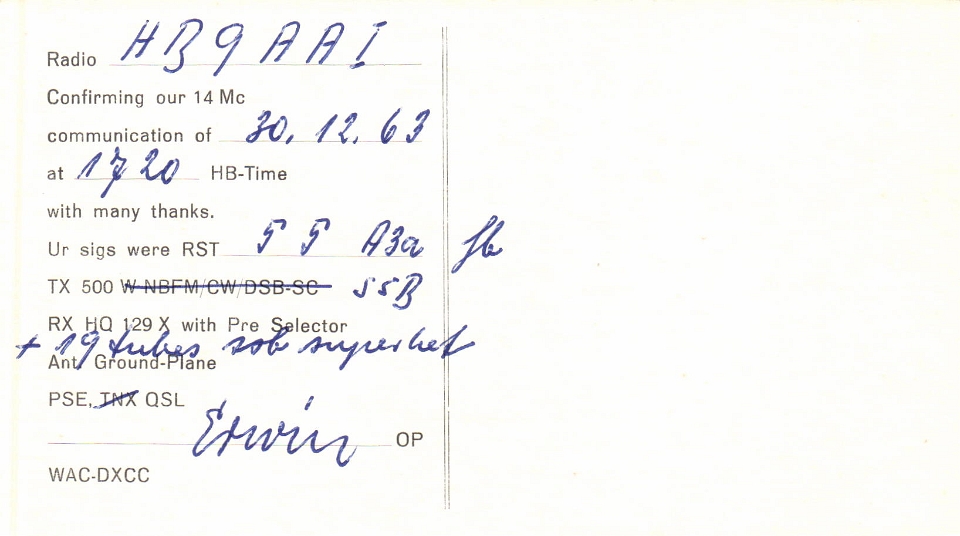 Radio HB9AAI
Confirming our 14 Mc
communication of 30. 12. 63
at 1720 HB-Time
with many thanks.
Ur sigs were RST 5 5 A3a fb
TX 500 W NBFM/CW/DSB-SC SSB
RX HQ 129 X with Pre Selector
+ 19 tubes ssb superhet
Ant. Ground-Plane
PSE, TNX QSL
Erwin OP
WAC-DXCC